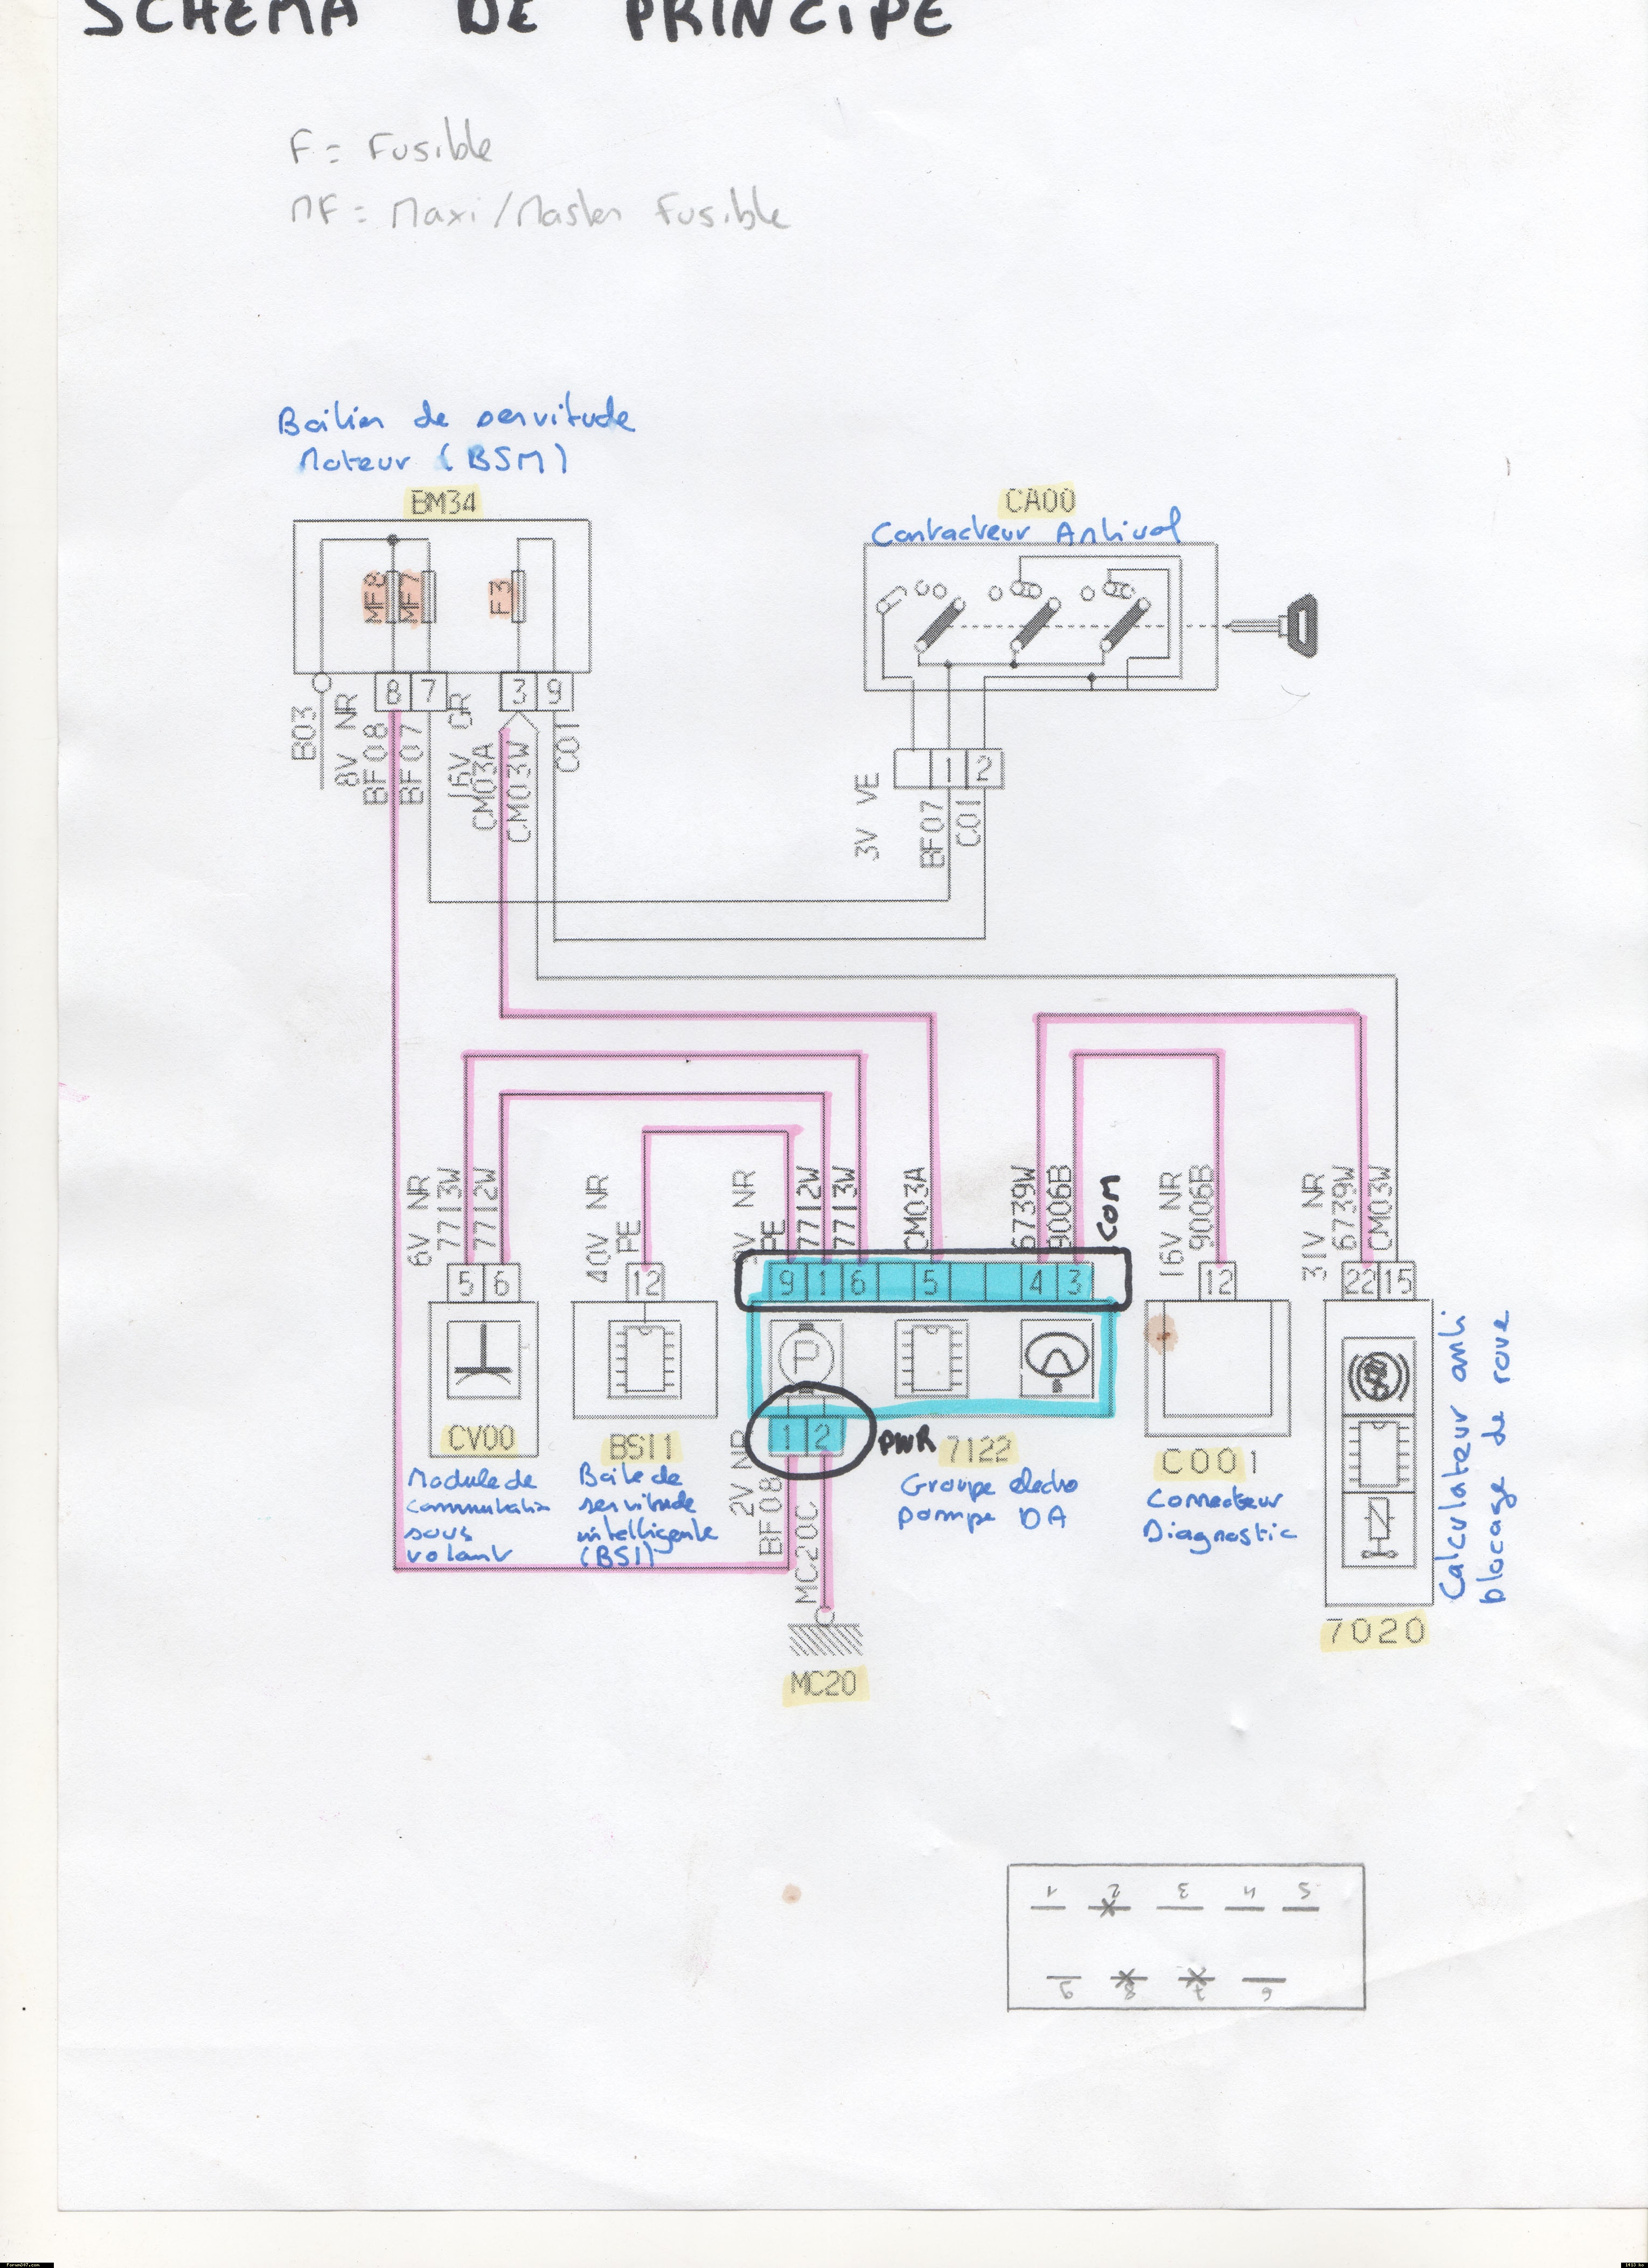 SCHEMA DE PRINCIPE
F = Fusible
MF = Maxi/Master Fusible
Boitier de servitude
Moteur (BSM)
BM34
CA00
Contacteur Antivol
MF8
MF7
F3
8
7
3
9
B03
8V NR
BF08
BF07
16V GR
CM03A
CM03W
C01
1
2
3V VE
BF07
C01
6V NR
7713W
7712W
40V NR
PE
NR
PE
7712W
7713W
CM03A
6739W
9006B
COM
16V NR
9006B
31V NR
6739W
CM03W
5
6
12
9
1
6
5
4
3
12
22
15
P
CV00
Module de
commutation
sous
volant
BSI1
Boite de
servitude
intelligente
(BSI)
1
2
PWR
7122
Groupe electro
pompe DA
2V NR
BF08
MC20C
MC20
C001
Connecteur
Diagnostic
Calculateur anti
blocage de roue
7020
1 2 3 4 5
9 8 7 6
Forum247.com